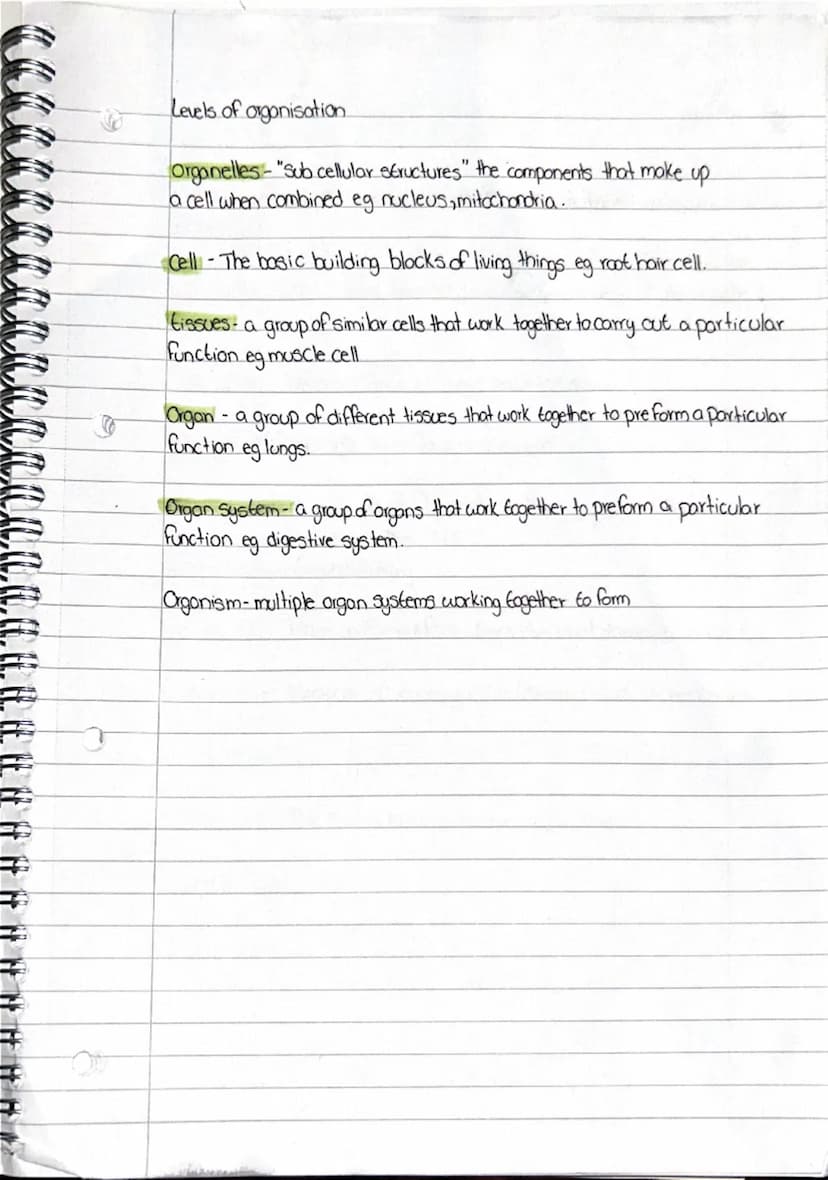 Levels of organisation
Organelles - "Sub cellular structures" the components that make up
a cell when combined eg nucleus, mitochondria.
Cell - The basic building blocks of living things eg root hair cell.
tissues - a group of similar cells that work together to carry out a particular
function eg muscle cell
Organ - a group of different tissues that work together to preform a particular
function eg lungs.
Organ system - a group of organs that work together to preform a particular
function eg digestive system.
Organism - multiple organ systems working together to form